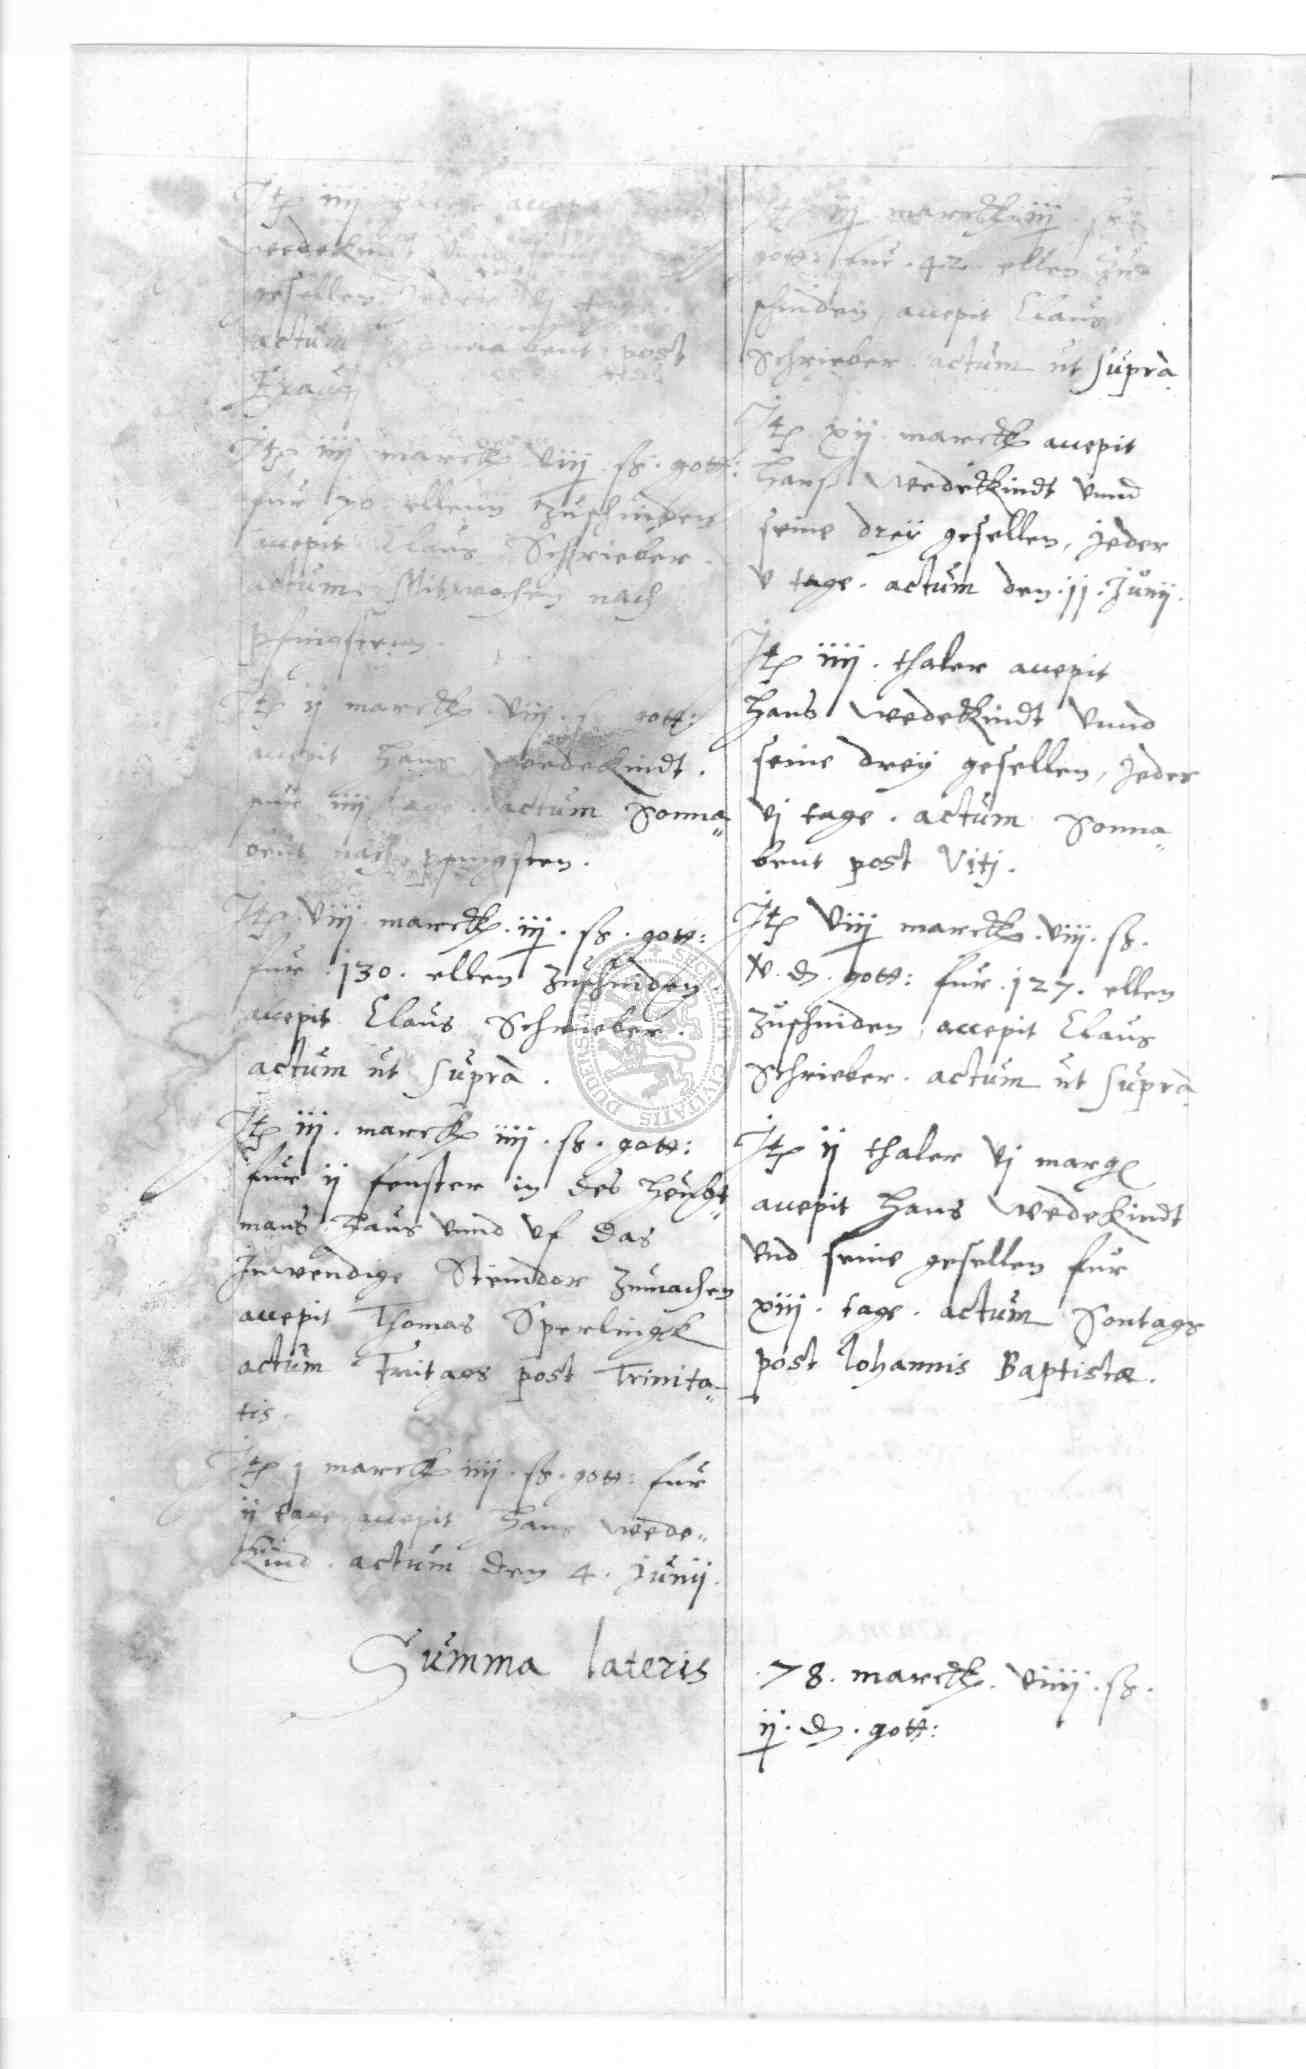 Itē iiij accepit
wedekindt
gesellen
actum post
Itē iiij marck viij ß gott:
fur 70 ellenn zuschniden
accepit Claus Schrieber.
actum Mitwochen nach
pfingsten.
Itē ij marck viij gott:
accepit Hans wedekindt.
fur iiij tage. actum Sonna„
bent nach pfingsten.
Itē viij marck. iij. ß. gott:
fur .130. ellen zuschniden
accepit Claus Schrieber.
actum ut supra.
Itē iij. marck iiij. ß. gott:
fur ij fenster in des heubt„
mans haus vnnd vf das
Inwendige Steindor zumachen
accepit Thomas Sperlingk
actum Fritags post Trinita„
tis
Itē j marck iiij. ß. gott: fur
ij tage accepit Hans wede„
kind. actum den 4. Junij.
Itē marck iij
gott: fur .42. ellen zu
schniden, accepit Claus
Schrieber. actum ut supra
Itē xij. marck accepit
Hanß wedekindt vnnd
seine drey gesellen, jeder
v tage. actum den .11. Junij.
Itē iiij. thaler accepit
Hans wedekindt vnnd
seine drey gesellen, jeder
vj tage. actum Sonna„
bent post Viti.
Itē viij marck. viij. ß.
v. d. gott: fur .127. ellen
zuschniden, accepit Claus
Schrieber. actum ut supra
Itē ij thaler vj marg
accepit Hans wedekindt
vnd seine gesellen fur
xiij. tage. actum Sontags
post Iohannis Baptistæ.
Summa lateris .78. marck. viiij. ß.
ij. d. gott: